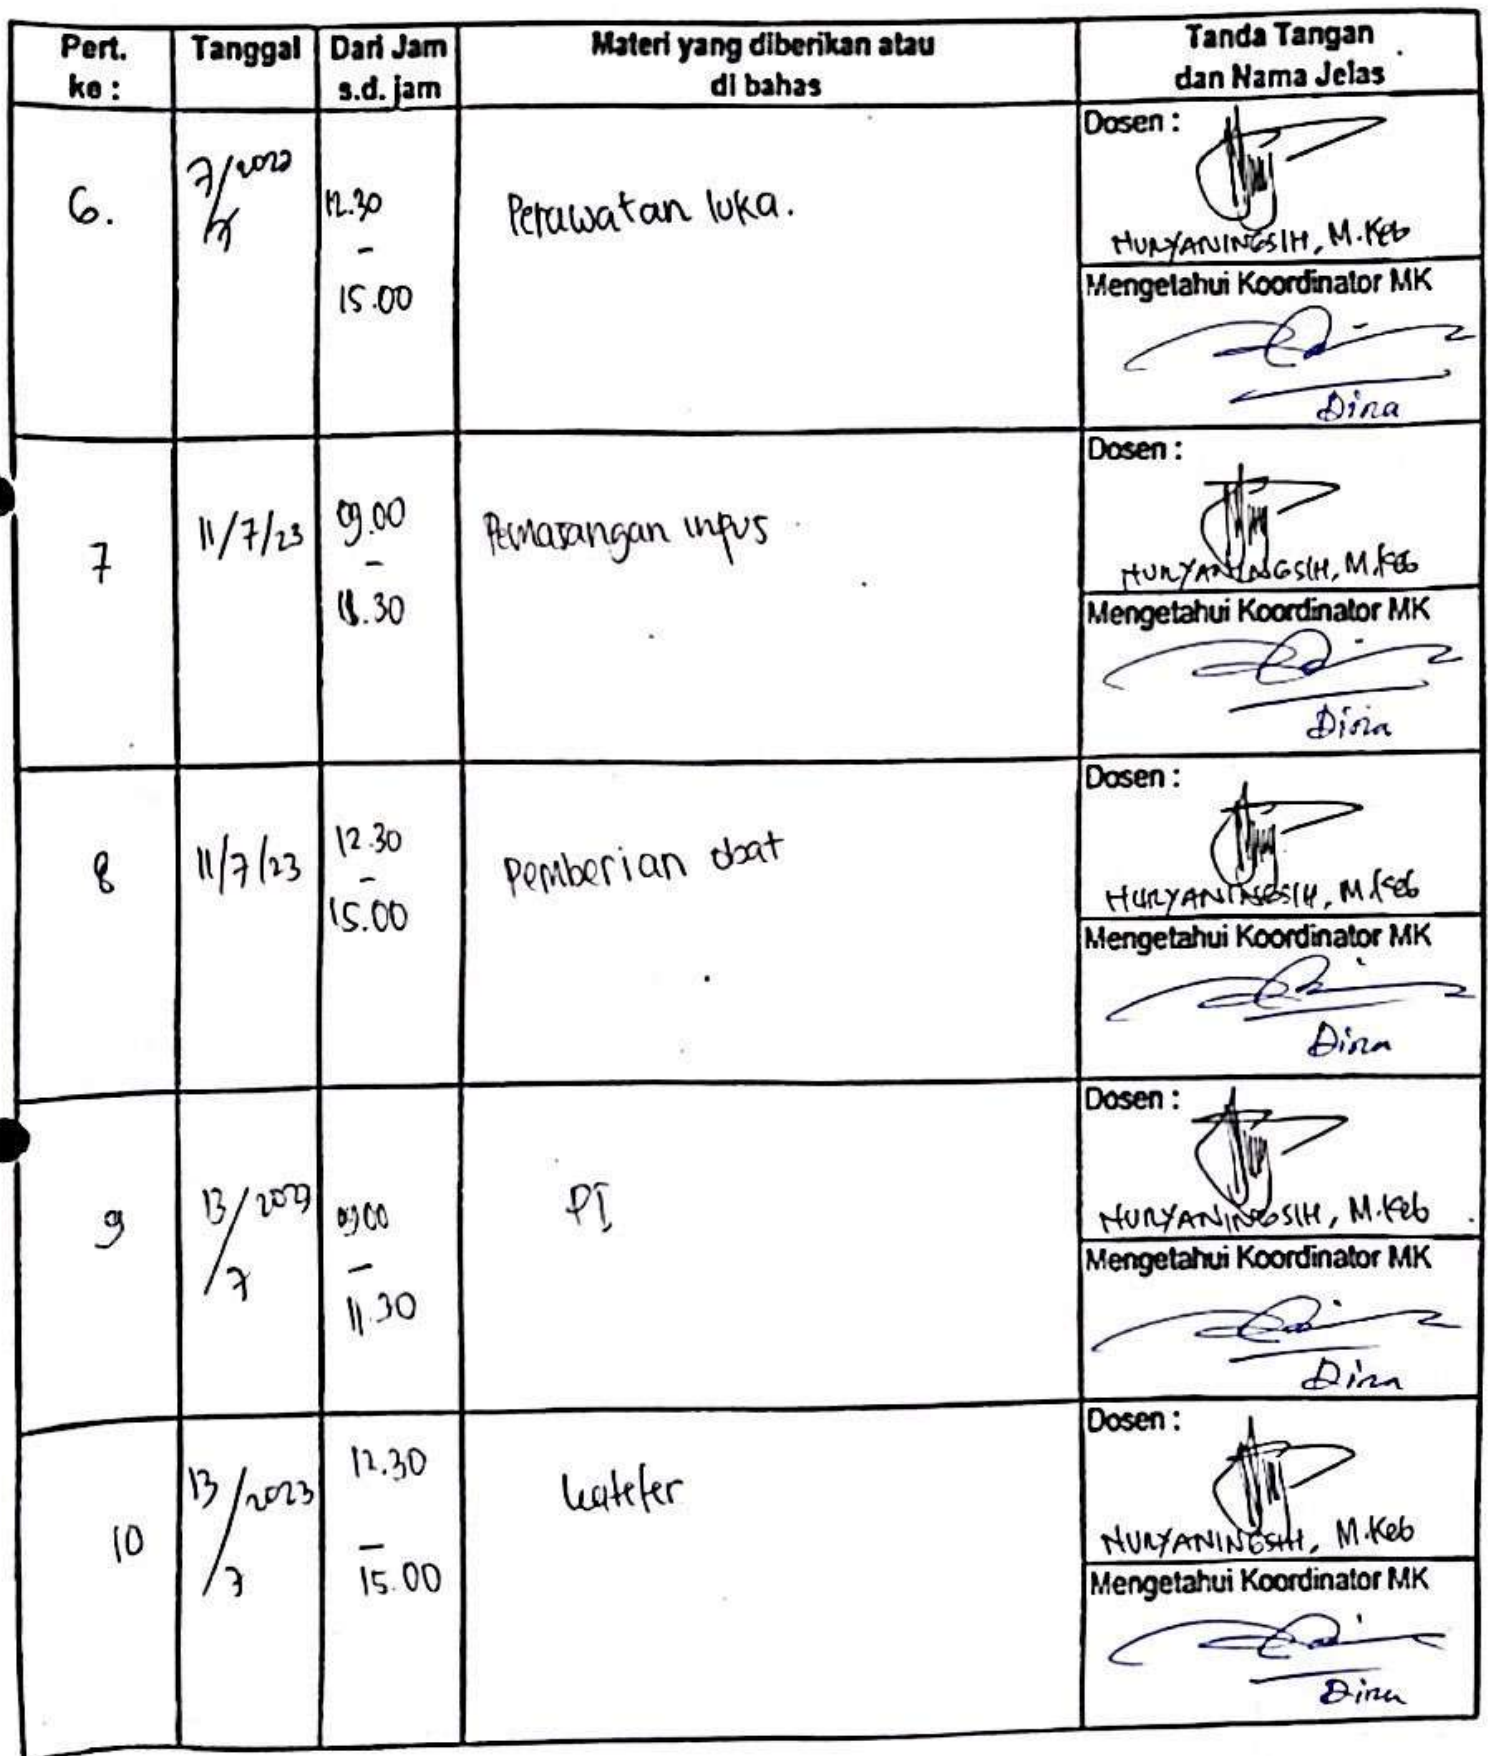 Pert. ke :
Tanggal
Dari Jam s.d. jam
Materi yang diberikan atau di bahas
Tanda Tangan dan Nama Jelas
6.
7/2023
12.30
-
15.00
Perawatan luka.
Dosen :
NURYANINGSIH, M.Keb
Mengetahui Koordinator MK
Dina
7
11/7/23
09.00
-
11.30
Pemasangan inpus
Dosen :
NURYANINGSIH, M.Keb
Mengetahui Koordinator MK
Dina
8
11/7/23
12.30
-
15.00
Pemberian obat
Dosen :
NURYANINGSIH, M.Keb
Mengetahui Koordinator MK
Dina
9
13/2023
/7
09.00
-
11.30
PI
Dosen :
NURYANINGSIH, M.Keb
Mengetahui Koordinator MK
Dina
10
13/2023
/7
12.30
-
15.00
kateter
Dosen :
NURYANINGSIH, M.Keb
Mengetahui Koordinator MK
Dina